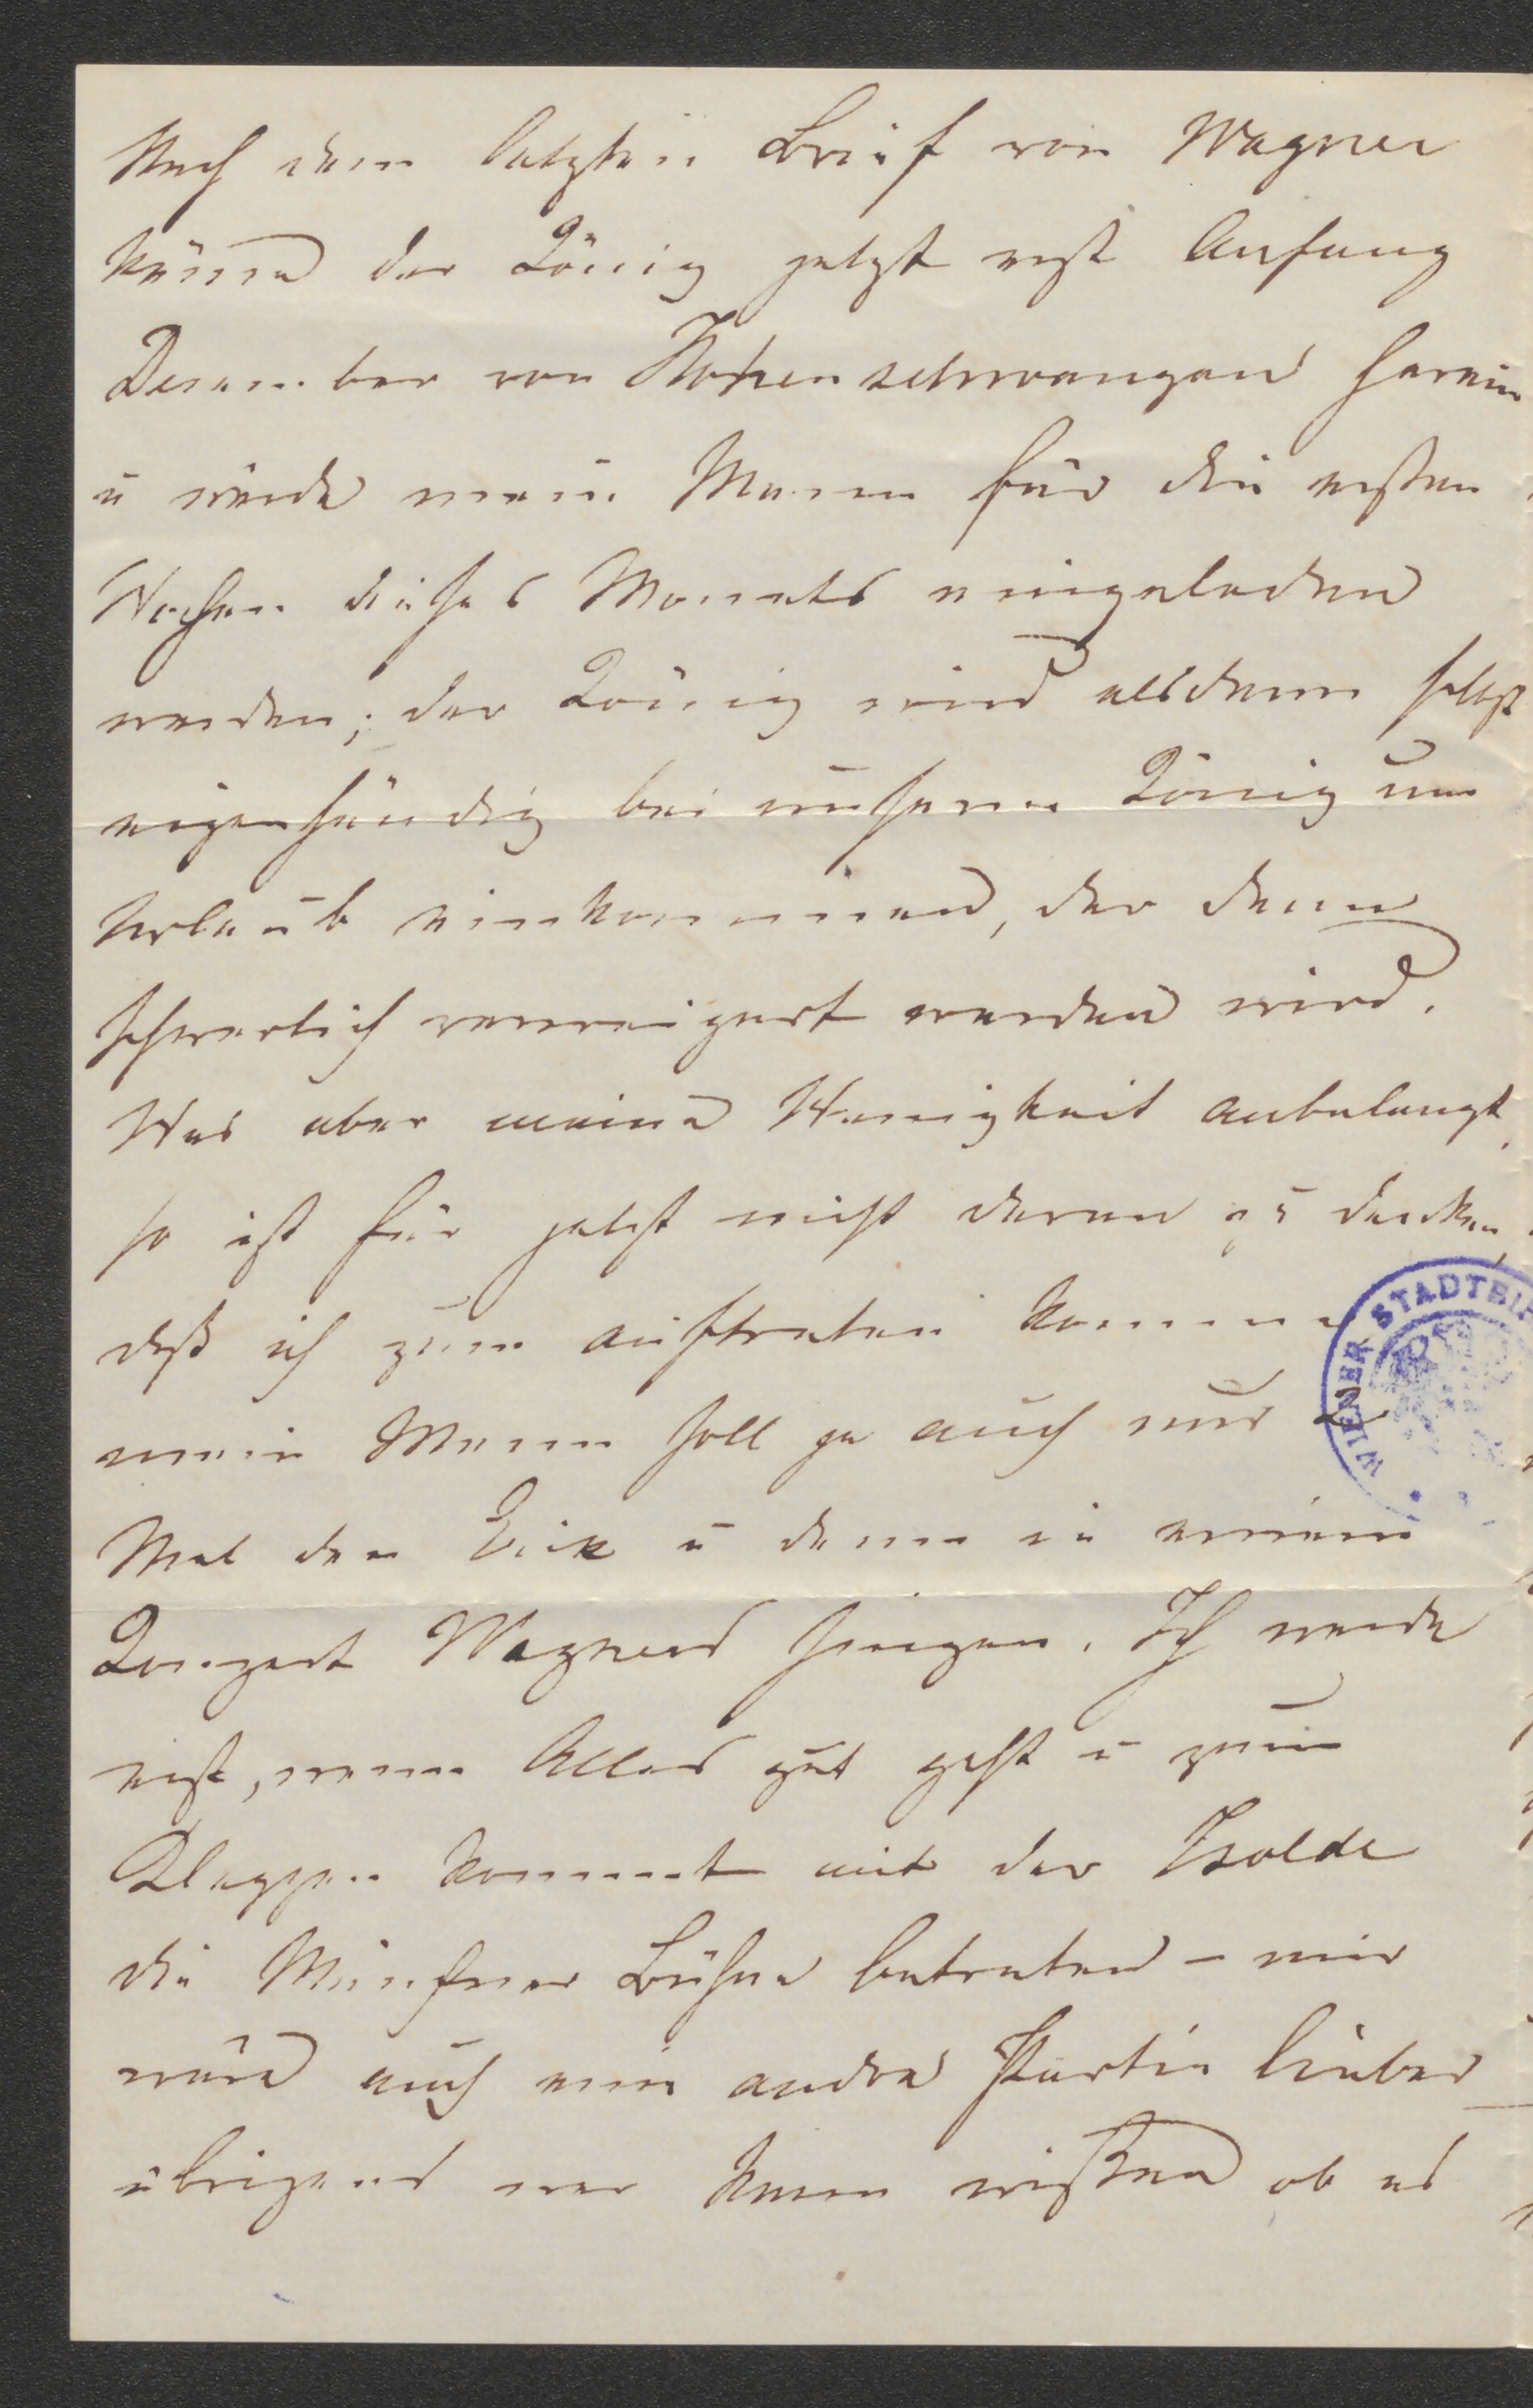 Nach dem letzten Brief von Wagner
käme der König jetzt erst Anfang
Dezember von Hohenschwangau herein
u würde mein Mann für die ersten
Wochen dieses Monats eingeladen
werden; der König wird alsdann selbst
eigenhändig bei unserm König um
Urlaub einkommen, der dann
schwerlich verweigert werden wird.
Was aber meine Wenigkeit anbelangt,
so ist für jetzt nicht daran zu denken,
daß ich zum auftreten komme
mein Mann soll ja auch nur 2
Mal den Erik u dann in einem
Konzert Wagners singen. Ich werde
erst, wenn Alles gut geht u zum
Klappen kommt mit der Isolde
die Münchner Bühne betreten – mir
wäre auch eine andre Partie lieber
übrigens wer kann wißen ob es
WIENER STADTBI